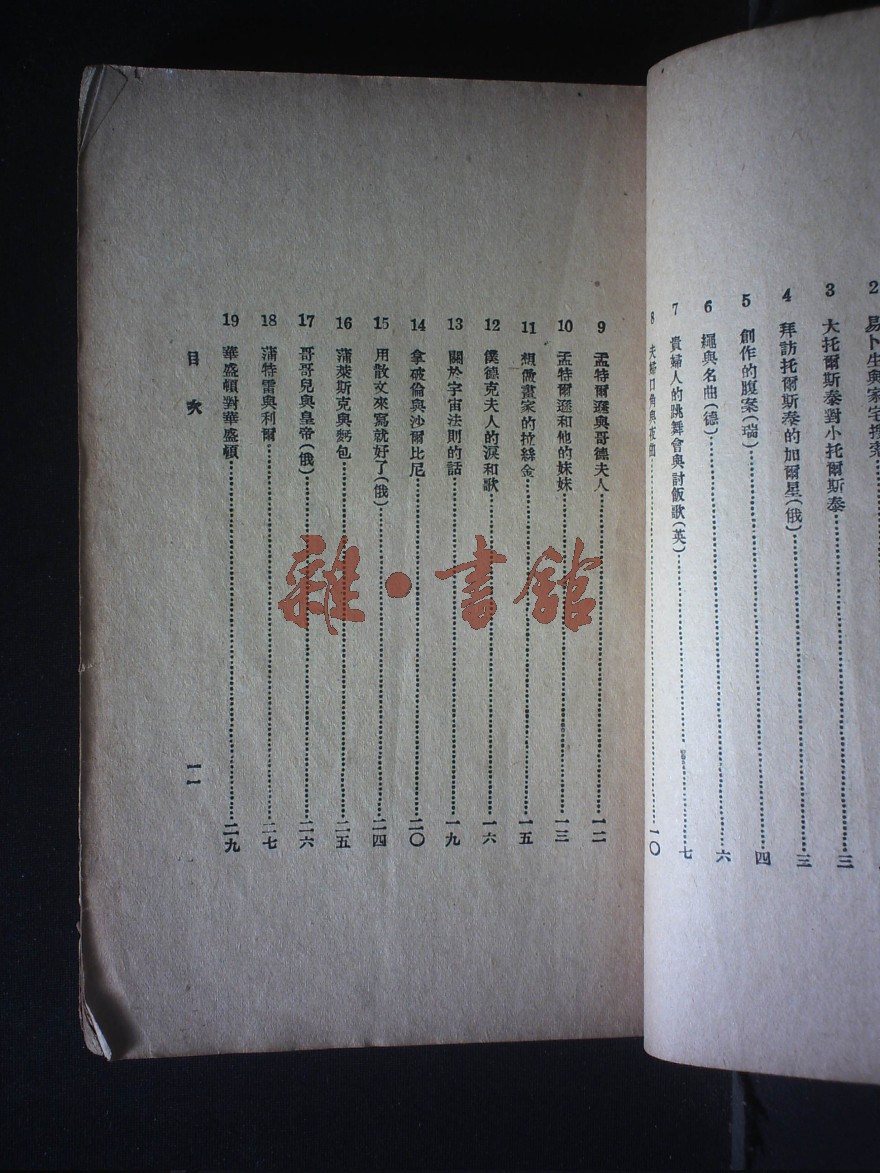 2 易卜生與家宅搜索
3 大托爾斯泰對小托爾斯泰……三
4 拜訪托爾斯泰的加爾星(俄)……三
5 創作的腹案(瑞)……四
6 繩與名曲(德)……六
7 貴婦人的跳舞會與討飯歌(英)……七
8 夫婦口角與夜曲……一〇
9 孟特爾遜與哥德夫人……一二
10 孟特爾遜和他的妹妹……一三
11 想做畫家的拉絲金……一五
12 僕德克夫人的淚和歌……一六
13 關於宇宙法則的話……一九
14 拿破倫與沙爾比尼……二〇
15 用散文來寫就好了(俄)……二四
16 蒲萊斯克與麪包……二五
17 哥哥兒與皇帝(俄)……二六
18 蒲特雷與利爾……二七
19 華盛頓對華盛頓……二九
目次 二
雜·書館